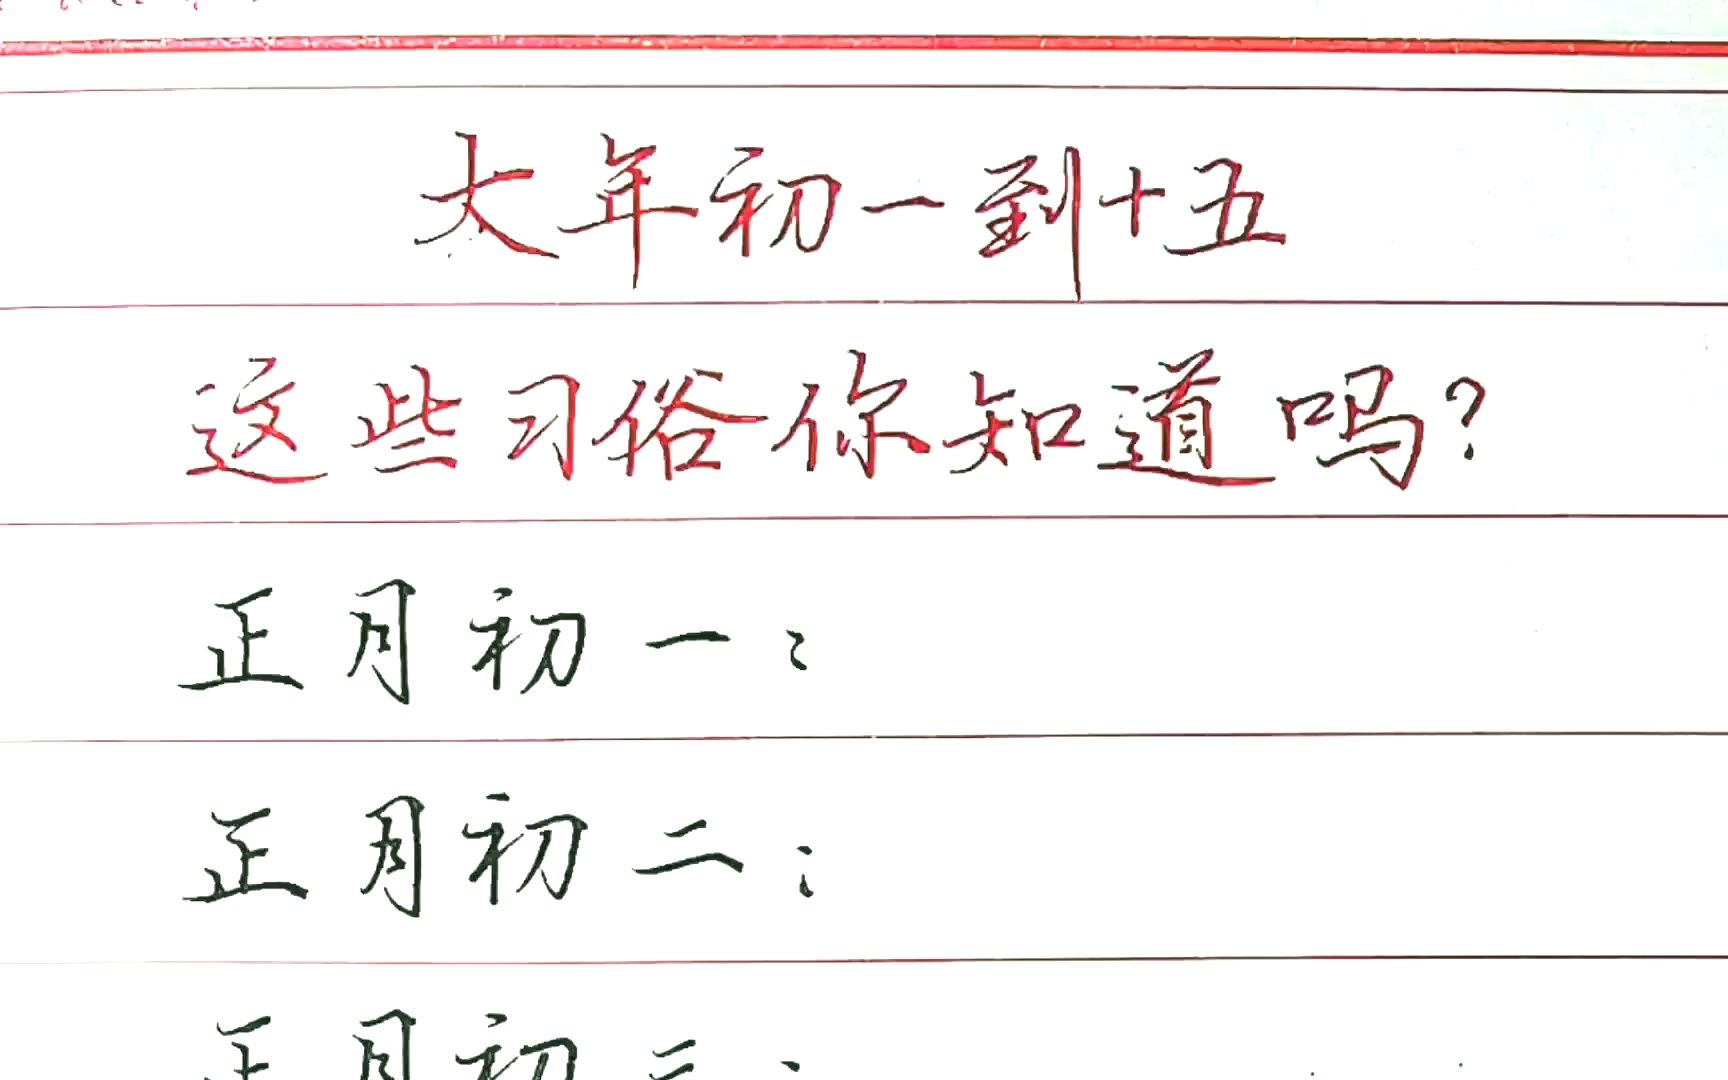 大年初一到十五
这些习俗你知道吗?
正月初一:
正月初二:
正月初三: